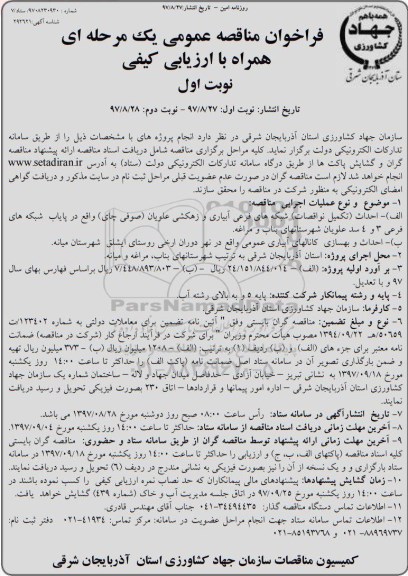 روزنامه امین - تاریخ انتشار ۹۷/۸/۲۷
شماره : ۹۷۰۸۲۳۰۹۳۰ - ستاد/۷
شناسه آگهی: ۲۹۳۶۲۱
همه با هم
جهاد
کشاورزی
استان آذربایجان شرقی
فراخوان مناقصه عمومی یک مرحله ای
همراه با ارزیابی کیفی
نوبت اول
تاریخ انتشار: نوبت اول: ۹۷/۸/۲۷ - نوبت دوم: ۹۷/۸/۲۸
سازمان جهاد کشاورزی استان آذربایجان شرقی در نظر دارد انجام پروژه های با مشخصات ذیل را از طریق سامانه
تدارکات الکترونیکی دولت برگزار نماید. کلیه مراحل برگزاری مناقصه شامل دریافت اسناد مناقصه ارائه پیشنهاد مناقصه
گران و گشایش پاکت ها از طریق درگاه سامانه تدارکات الکترونیکی دولت (ستاد) به آدرس www.setadiran.ir
انجام خواهد شد لازم است مناقصه گران در صورت عدم عضویت قبلی مراحل ثبت نام در سایت مذکور و دریافت گواهی
امضای الکترونیکی به منظور شرکت در مناقصه را محقق سازند.
۱- موضوع و نوع عملیات اجرایی مناقصه:
الف)- احداث (تکمیل نواقصات) شبکه های فرعی آبیاری و زهکشی علویان (صوفی چای) واقع در پایاب شبکه های
فرعی ۳ و ۴ سد علویان شهرستانهای بناب و مراغه.
ب)- احداث و بهسازی کانالهای آبیاری عمومی واقع در نهر دوران ارخی روستای ایشلق شهرستان میانه.
۲- محل اجرای پروژه: استان آذربایجان شرقی به ترتیب شهرستانهای بناب، مراغه و میانه.
۳- بر آورد اولیه پروژه: (الف)- ۲۴/۱۵۱/۸۴۴/۰۱۴ ریال - (ب)- ۷/۴۴۸/۸۹۳/۸۰۳ ریال براساس فهارس بهای سال
۹۷ و با تعدیل.
۴- پایه و رشته پیمانکار شرکت کننده: پایه ۵ و به بالای رشته آب
۵- کارفرما: سازمان جهاد کشاورزی استان آذربایجان شرقی
۶- نوع و مبلغ تضمین: مناقصه گران بایستی وفق " آئین نامه تضمین برای معاملات دولتی به شماره ۱۲۳۴۰۲/ت
۵۰۶۵۹هـ مورخ ۱۳۹۴/۰۹/۲۲ مصوب هیأت محترم وزیران " برای شرکت در فرآیند ارجاع کار (شرکت در مناقصه) ضمانت
نامه معتبر برای جزء های (الف) و (ب) ردیف(۱) به ترتیب: (الف)- ۱۲۰۸ میلیون ریال (ب) - ۳۷۳ میلیون ریال تهیه
و ضمن بارگذاری تصویر آن در سامانه ستاد اصل ضمانت نامه (پاکت الف) را حداکثر تا ساعت ۱۴:۰۰ روز یکشنبه
مورخ ۱۳۹۷/۰۹/۱۸ به نشانی تبریز - خیابان آزادی - حدفاصل میدان جهاد و لاله - ساختمان شماره یک سازمان جهاد
کشاورزی استان آذربایجان شرقی - اداره امور پیمانها و قراردادها - اتاق ۲۳۰ بصورت فیزیکی تحویل و رسید دریافت
نمایند.
۷- تاریخ انتشارآگهی در سامانه ستاد: رأس ساعت ۰۸:۰۰ صبح روز دوشنبه مورخ ۱۳۹۷/۰۸/۲۸ می باشد.
۸- آخرین مهلت زمانی دریافت اسناد مناقصه از سامانه ستاد: حداکثر تا ساعت ۱۴:۰۰ روز یکشنبه مورخ ۱۳۹۷/۰۹/۰۴.
۹- آخرین مهلت زمانی ارائه پیشنهاد توسط مناقصه گران از طریق سامانه ستاد و حضوری: مناقصه گران بایستی
کلیه اسناد مناقصه (پاکتهای الف، ب، ج) و ارزیابی را حداکثر تا ساعت ۱۴:۰۰ روز یکشنبه مورخ ۱۳۹۷/۰۹/۱۸ در سامانه
ستاد بارگزاری و و یک نسخه از آن را نیز بصورت فیزیکی به نشانی مندرج در ردیف (۶) تحویل و رسید دریافت نمایند.
۱۰- زمان گشایش پیشنهادها: پیشنهادهای مالی پیمانکاران که حد نصاب نمره ارزیابی کیفی را کسب نموده باشند در
ساعت ۱۴:۰۰ روز یکشنبه مورخ ۹۷/۰۹/۲۵ در اتاق جلسه مدیریت آب و خاک (شماره ۴۳۹) گشایش خواهد یافت.
۱۱- اطلاعات تماس دستگاه مناقصه گذار: ۳۴۴۹۴۴۳۵-۰۴۱ جناب آقای مهندس قادری.
۱۲- اطلاعات تماس سامانه ستاد جهت انجام مراحل عضویت در سامانه: مرکز تماس: ۴۱۹۳۴-۰۲۱ دفتر ثبت نام:
۸۸۹۶۹۷۳۷-۰۲۱ و ۸۵۱۹۳۷۶۸-۰۲۱
کمیسیون مناقصات سازمان جهاد کشاورزی استان آذربایجان شرقی